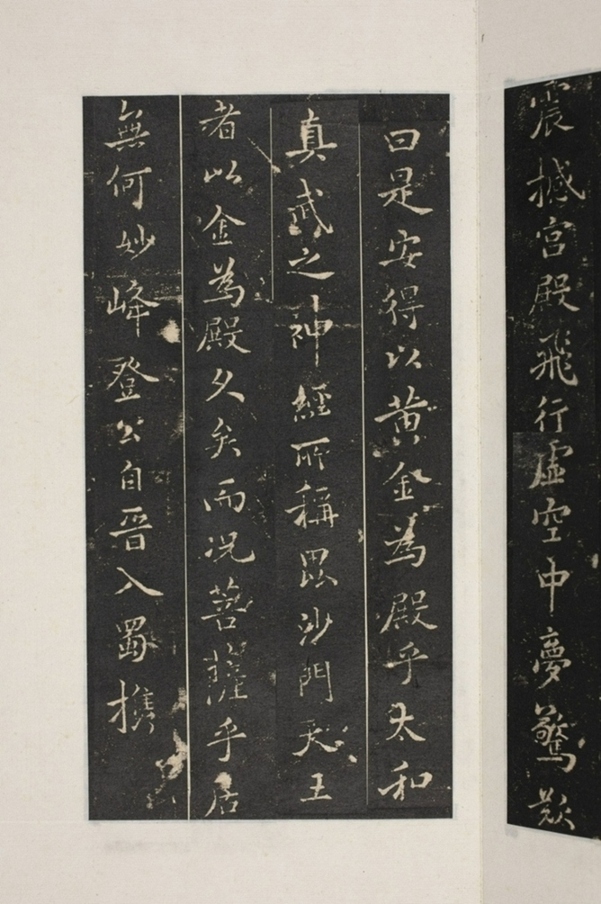 震撼宮殿飛行虛空中夢驚歎
曰是安得以黄金為殿乎太和
真武之神經所稱毘沙門天王
者以金為殿久矣而況菩薩乎居
無何妙峰登公自晋入蜀携